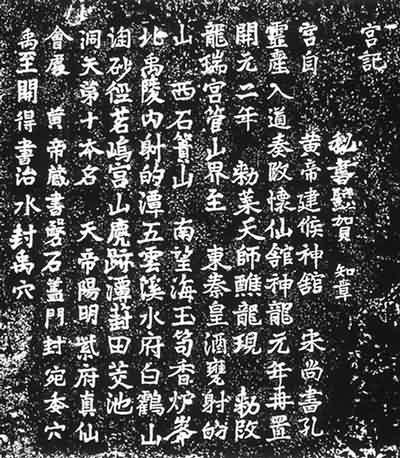 宮記
秘書監賀 知章
宮自 黃帝建候神舘 宋尚書孔
靈産入道奏改懷仙舘神龍元年再置
開元二年 勅葉天師醮龍現 勅改
龍瑞宮管山界至 東秦皇酒甕射的
山 西石簣山 南望海玉笥香炉峯
北禹陵內射的潭五雲溪水府白鶴山
淘砂徑茗塢宮山鹿跡潭葑田茭池
洞天第十本名 天帝陽明紫府真仙
會處 黃帝藏書磐石盖門封宛委穴
禹至開得書治水封禹穴